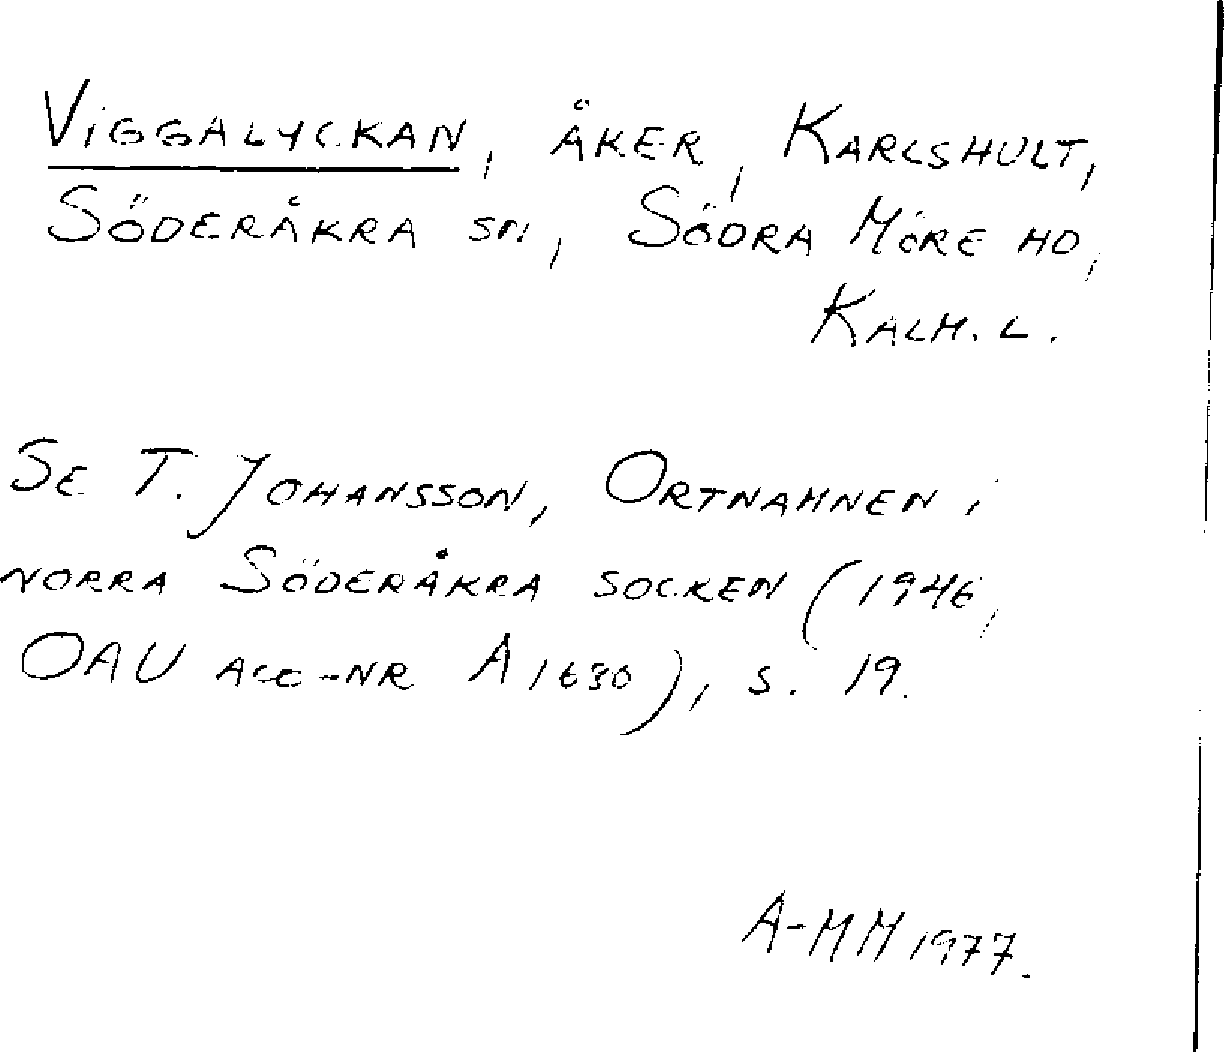 VIGGALYCKAN, ÅKER, KARLSHULT,
SÖDERÅKRA SN, SÖDRA MÖRE HD,
KALM. L.
SE T. JOHANSSON, ORTNAMNEN I
NORRA SÖDERÅKRA SOCKEN (1946,
OAU ACC-NR A1630), S. 19.
A-MM 1977.